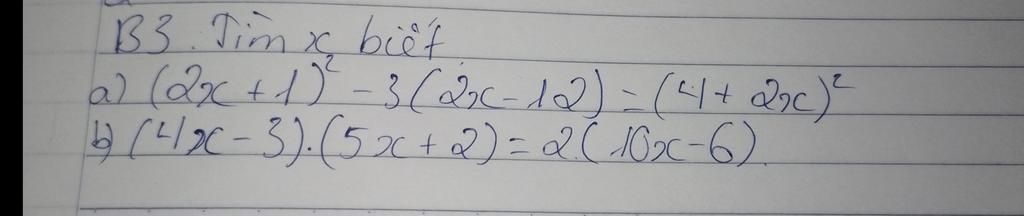 B3. Tìm x biết
a) (2x + 1)² - 3(2x - 12) = (4 + 2x)²
b) (4x - 3).(5x + 2) = 2.(10x - 6)